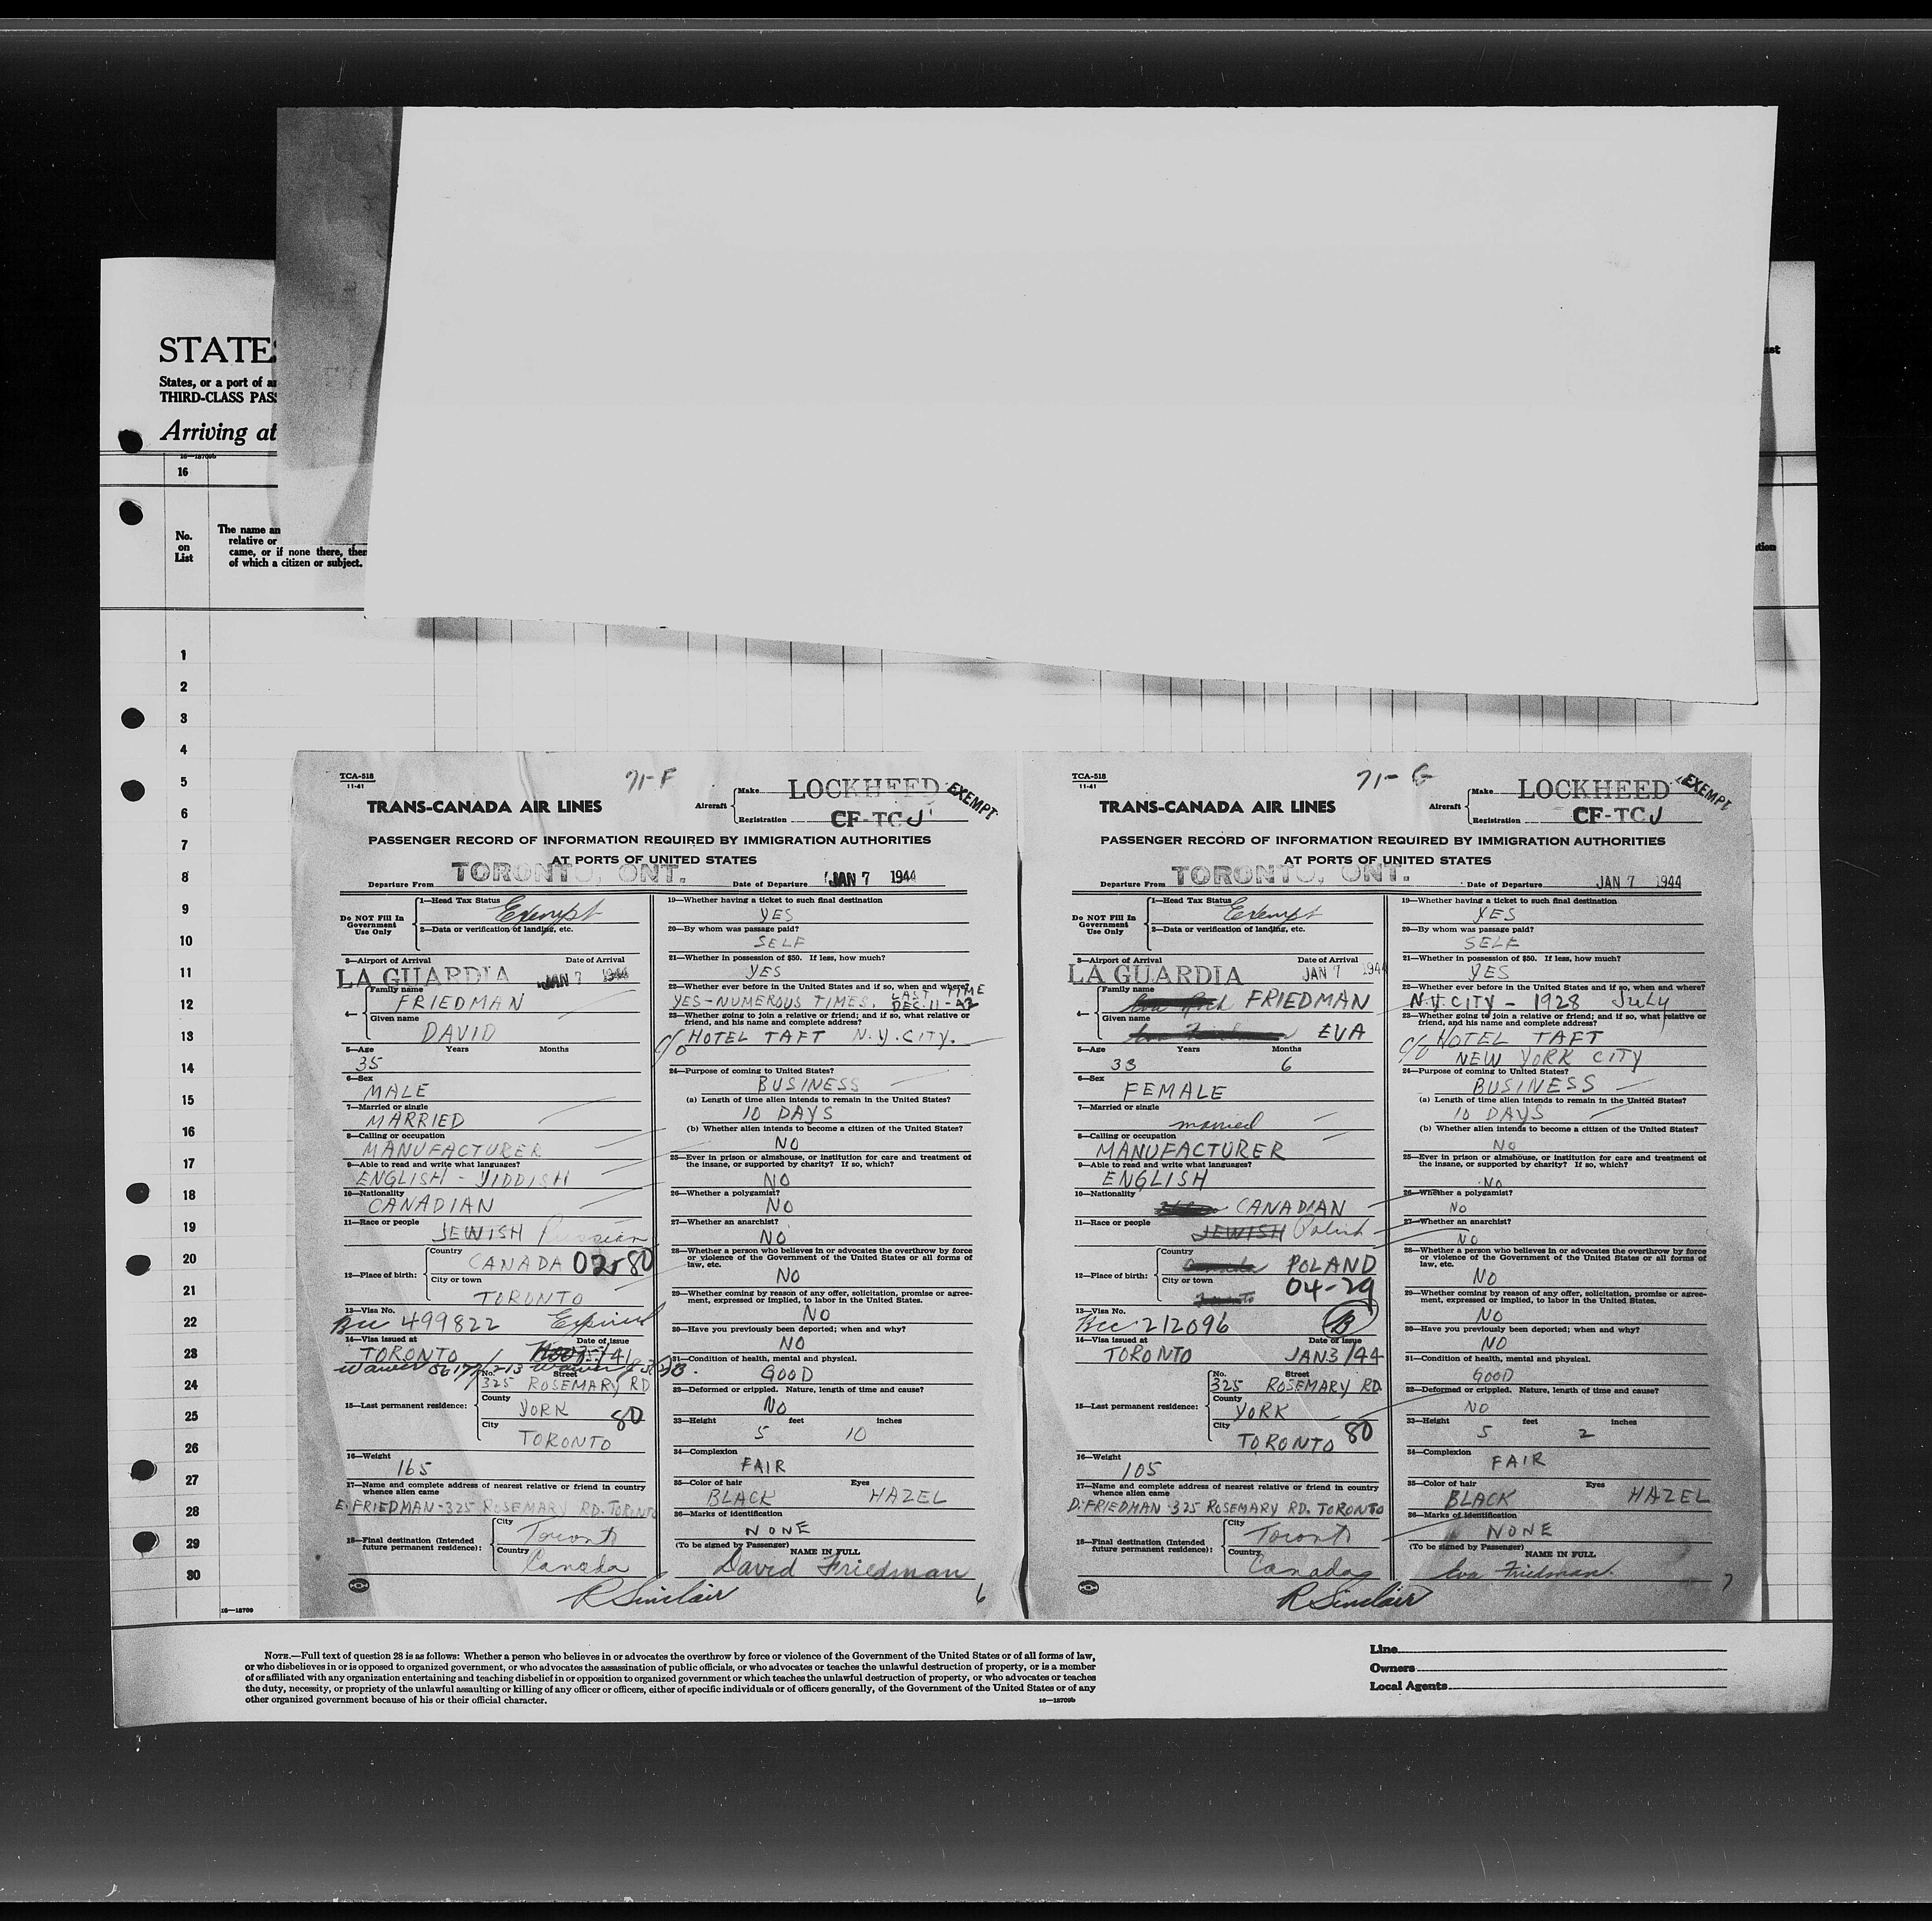 STATES
States, or a port of an
THIRD-CLASS PASS
Arriving at
16—18709b
16
No.
on
List
The name an
relative or
came, or if none there, then
of which a citizen or subject.
1
2
3
4
5
6
7
8
9
10
11
12
13
14
15
16
17
18
19
20
21
22
23
24
25
26
27
28
29
30
16—18709
TCA-518
11-41
71-F
TRANS-CANADA AIR LINES
Aircraft
Make LOCKHEED EXEMPT
Registration CF-TCJ
PASSENGER RECORD OF INFORMATION REQUIRED BY IMMIGRATION AUTHORITIES
AT PORTS OF UNITED STATES
Departure From TORONTO, ONT. Date of Departure JAN 7 1944
Do NOT Fill In
Government
Use Only
1—Head Tax Status Exempt
2—Data or verification of landing, etc.
3—Airport of Arrival Date of Arrival
LA GUARDIA JAN 7 1944
4— Family name
FRIEDMAN
Given name
DAVID
5—Age Years Months
35
6—Sex
MALE
7—Married or single
MARRIED
8—Calling or occupation
MANUFACTURER
9—Able to read and write what languages?
ENGLISH - YIDDISH
10—Nationality
CANADIAN
11—Race or people
JEWISH Russian
12—Place of birth:
Country
CANADA 02-80
City or town
TORONTO
13—Visa No.
BCC 499822 Expired
14—Visa issued at Date of issue
TORONTO /41
waiver
15—Last permanent residence:
No. Street
325 ROSEMARY RD
County
YORK 80
City
TORONTO
16—Weight
165
17—Name and complete address of nearest relative or friend in country
whence alien came
E. FRIEDMAN-325 ROSEMARY RD. TORONTO
18—Final destination (Intended
future permanent residence):
City
Toronto
Country
Canada
19—Whether having a ticket to such final destination
YES
20—By whom was passage paid?
SELF
21—Whether in possession of $50. If less, how much?
YES
22—Whether ever before in the United States and if so, when and where?
YES-NUMEROUS TIMES. LAST TIME
DEC. 11-42
23—Whether going to join a relative or friend; and if so, what relative or
friend, and his name and complete address?
c/o HOTEL TAFT N.Y. CITY.
24—Purpose of coming to United States?
BUSINESS
(a) Length of time alien intends to remain in the United States?
10 DAYS
(b) Whether alien intends to become a citizen of the United States?
NO
25—Ever in prison or almshouse, or institution for care and treatment of
the insane, or supported by charity? If so, which?
NO
26—Whether a polygamist?
NO
27—Whether an anarchist?
NO
28—Whether a person who believes in or advocates the overthrow by force
or violence of the Government of the United States or all forms of
law, etc.
NO
29—Whether coming by reason of any offer, solicitation, promise or agree-
ment, expressed or implied, to labor in the United States.
NO
30—Have you previously been deported; when and why?
NO
31—Condition of health, mental and physical.
GOOD
32—Deformed or crippled. Nature, length of time and cause?
NO
33—Height feet inches
5 10
34—Complexion
FAIR
35—Color of hair Eyes
BLACK HAZEL
36—Marks of identification
NONE
(To be signed by Passenger) NAME IN FULL
David Friedman
R Sinclair
6
TCA-518
11-41
71-G
TRANS-CANADA AIR LINES
Aircraft
Make LOCKHEED EXEMPT
Registration CF-TCJ
PASSENGER RECORD OF INFORMATION REQUIRED BY IMMIGRATION AUTHORITIES
AT PORTS OF UNITED STATES
Departure From TORONTO, ONT. Date of Departure JAN 7 1944
Do NOT Fill In
Government
Use Only
1—Head Tax Status Exempt
2—Data or verification of landing, etc.
3—Airport of Arrival Date of Arrival
LA GUARDIA JAN 7 1944
4— Family name
FRIEDMAN
Given name
EVA
5—Age Years Months
33 6
6—Sex
FEMALE
7—Married or single
married
8—Calling or occupation
MANUFACTURER
9—Able to read and write what languages?
ENGLISH
10—Nationality
CANADIAN
11—Race or people
JEWISH Polish
12—Place of birth:
Country
Canada POLAND
City or town
Toronto 04-29
13—Visa No.
BCC 212096 B
14—Visa issued at Date of issue
TORONTO JAN 3/44
15—Last permanent residence:
No. Street
325 ROSEMARY RD.
County
YORK
City
TORONTO 80
16—Weight
105
17—Name and complete address of nearest relative or friend in country
whence alien came
D. FRIEDMAN 325 ROSEMARY RD. TORONTO
18—Final destination (Intended
future permanent residence):
City
Toronto
Country
Canada
19—Whether having a ticket to such final destination
YES
20—By whom was passage paid?
SELF
21—Whether in possession of $50. If less, how much?
YES
22—Whether ever before in the United States and if so, when and where?
N.Y. CITY - 1928 July
23—Whether going to join a relative or friend; and if so, what relative or
friend, and his name and complete address?
c/o HOTEL TAFT
NEW YORK CITY
24—Purpose of coming to United States?
BUSINESS
(a) Length of time alien intends to remain in the United States?
10 DAYS
(b) Whether alien intends to become a citizen of the United States?
NO
25—Ever in prison or almshouse, or institution for care and treatment of
the insane, or supported by charity? If so, which?
NO
26—Whether a polygamist?
NO
27—Whether an anarchist?
NO
28—Whether a person who believes in or advocates the overthrow by force
or violence of the Government of the United States or all forms of
law, etc.
NO
29—Whether coming by reason of any offer, solicitation, promise or agree-
ment, expressed or implied, to labor in the United States.
NO
30—Have you previously been deported; when and why?
NO
31—Condition of health, mental and physical.
GOOD
32—Deformed or crippled. Nature, length of time and cause?
NO
33—Height feet inches
5 2
34—Complexion
FAIR
35—Color of hair Eyes
BLACK HAZEL
36—Marks of identification
NONE
(To be signed by Passenger) NAME IN FULL
Eva Friedman
R Sinclair
7
NOTE.—Full text of question 28 is as follows: Whether a person who believes in or advocates the overthrow by force or violence of the Government of the United States or of all forms of law,
or who disbelieves in or is opposed to organized government, or who advocates the assassination of public officials, or who advocates or teaches the unlawful destruction of property, or is a member
of or affiliated with any organization entertaining and teaching disbelief in or opposition to organized government or which teaches the unlawful destruction of property, or who advocates or teaches
the duty, necessity, or propriety of the unlawful assaulting or killing of any officer or officers, either of specific individuals or of officers generally, of the Government of the United States or of any
other organized government because of his or their official character.
16—18709b
Line
Owners
Local Agents